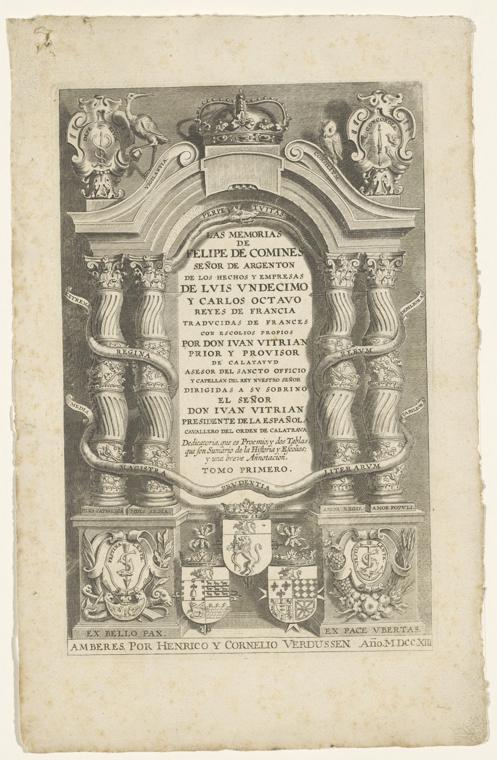 VIGILANTIA
PERPETVITAS
LAS MEMORIAS
DE
FELIPE DE COMINES
SEÑOR DE ARGENTON
DE LOS HECHOS Y EMPRESAS
DE LVIS VNDECIMO
Y CARLOS OCTAVO
REYES DE FRANCIA
TRADVCIDAS DE FRANCES
CON ESCOLIOS PROPIOS
POR DON IVAN VITRIAN
PRIOR Y PROVISOR
DE CALATAYVD
ASESOR DEL SANCTO OFFICIO
Y CAPELLAN DEL REY NVESTRO SEÑOR
DIRIGIDAS A SV SOBRINO
EL SEÑOR
DON IVAN VITRIAN
PRESIDENTE DE LA ESPAÑOLA
CAVALLERO DEL ORDEN DE CALATRAVA
Dedicatoria, que es Proemio; y dos Tablas
que son Sumario de la Historia y Escolios;
y una breve Annotacion.
TOMO PRIMERO.
REGINA
RERVM
MAGISTRA
LITERARVM
PRVDENTIA
AMOR POPVLI
EX BELLO PAX.
EX PACE VBERTAS.
AMBERES, POR HENRICO Y CORNELIO VERDUSSEN. Año. MDCCXIII